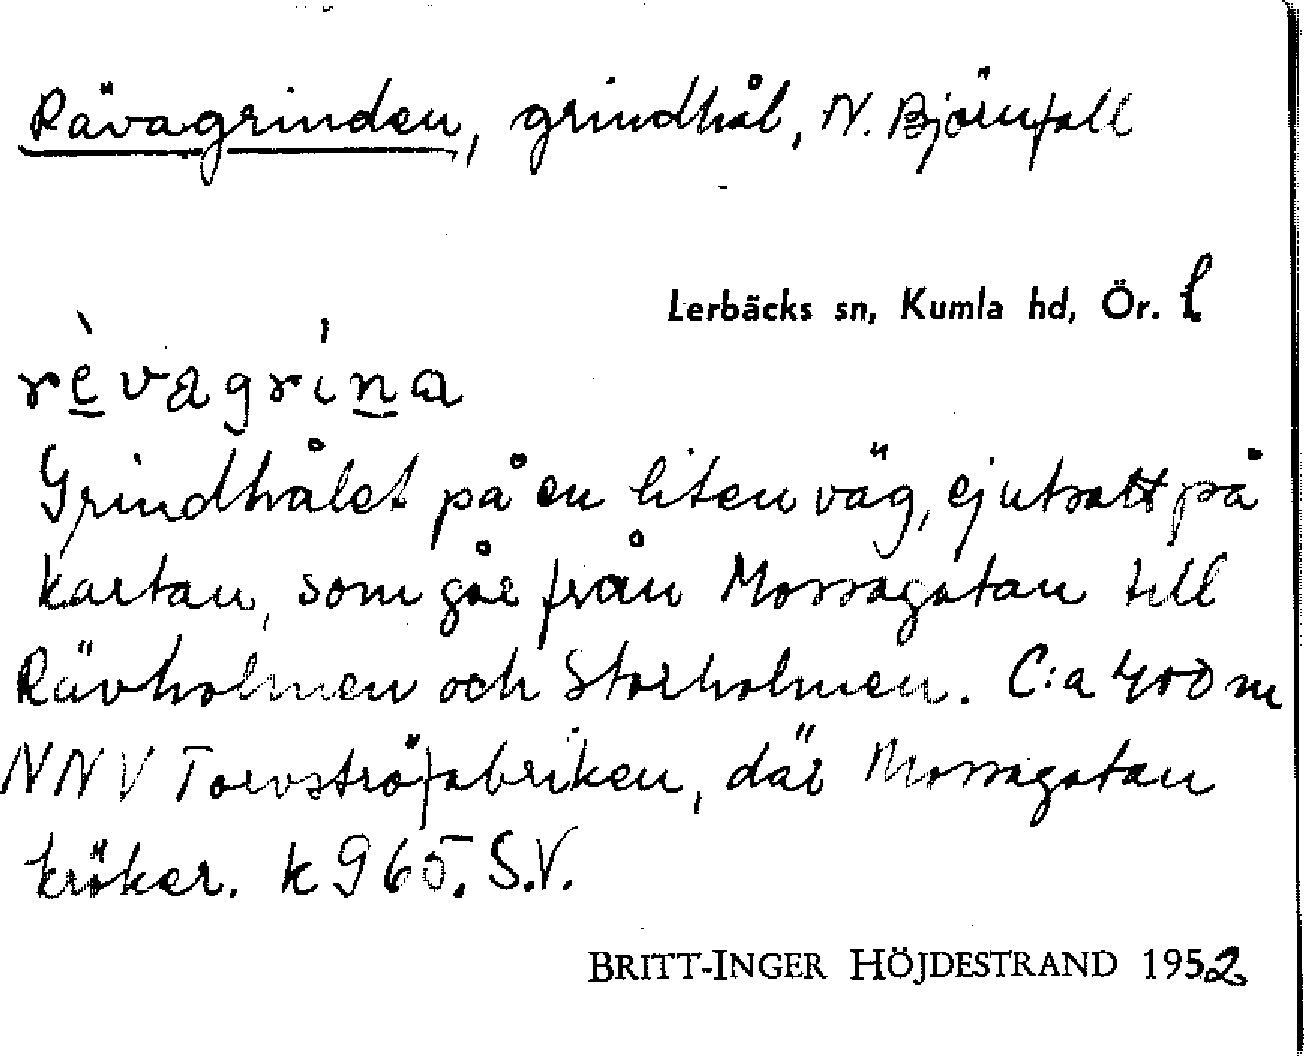 Rävagrinden, grindhål, N. Björnfall
Lerbäcks sn, Kumla hd, Ör. l
rè̱vagrína
Grindhålet på en liten väg, ej utsatt på
kartan, som går från Mossagatan till
Rävholmen och Storholmen. C:a 400 m
NNV Torvströfabriken, där Mossagatan
kröker. k 965. S.V.
BRITT-INGER HÖJDESTRAND 1952